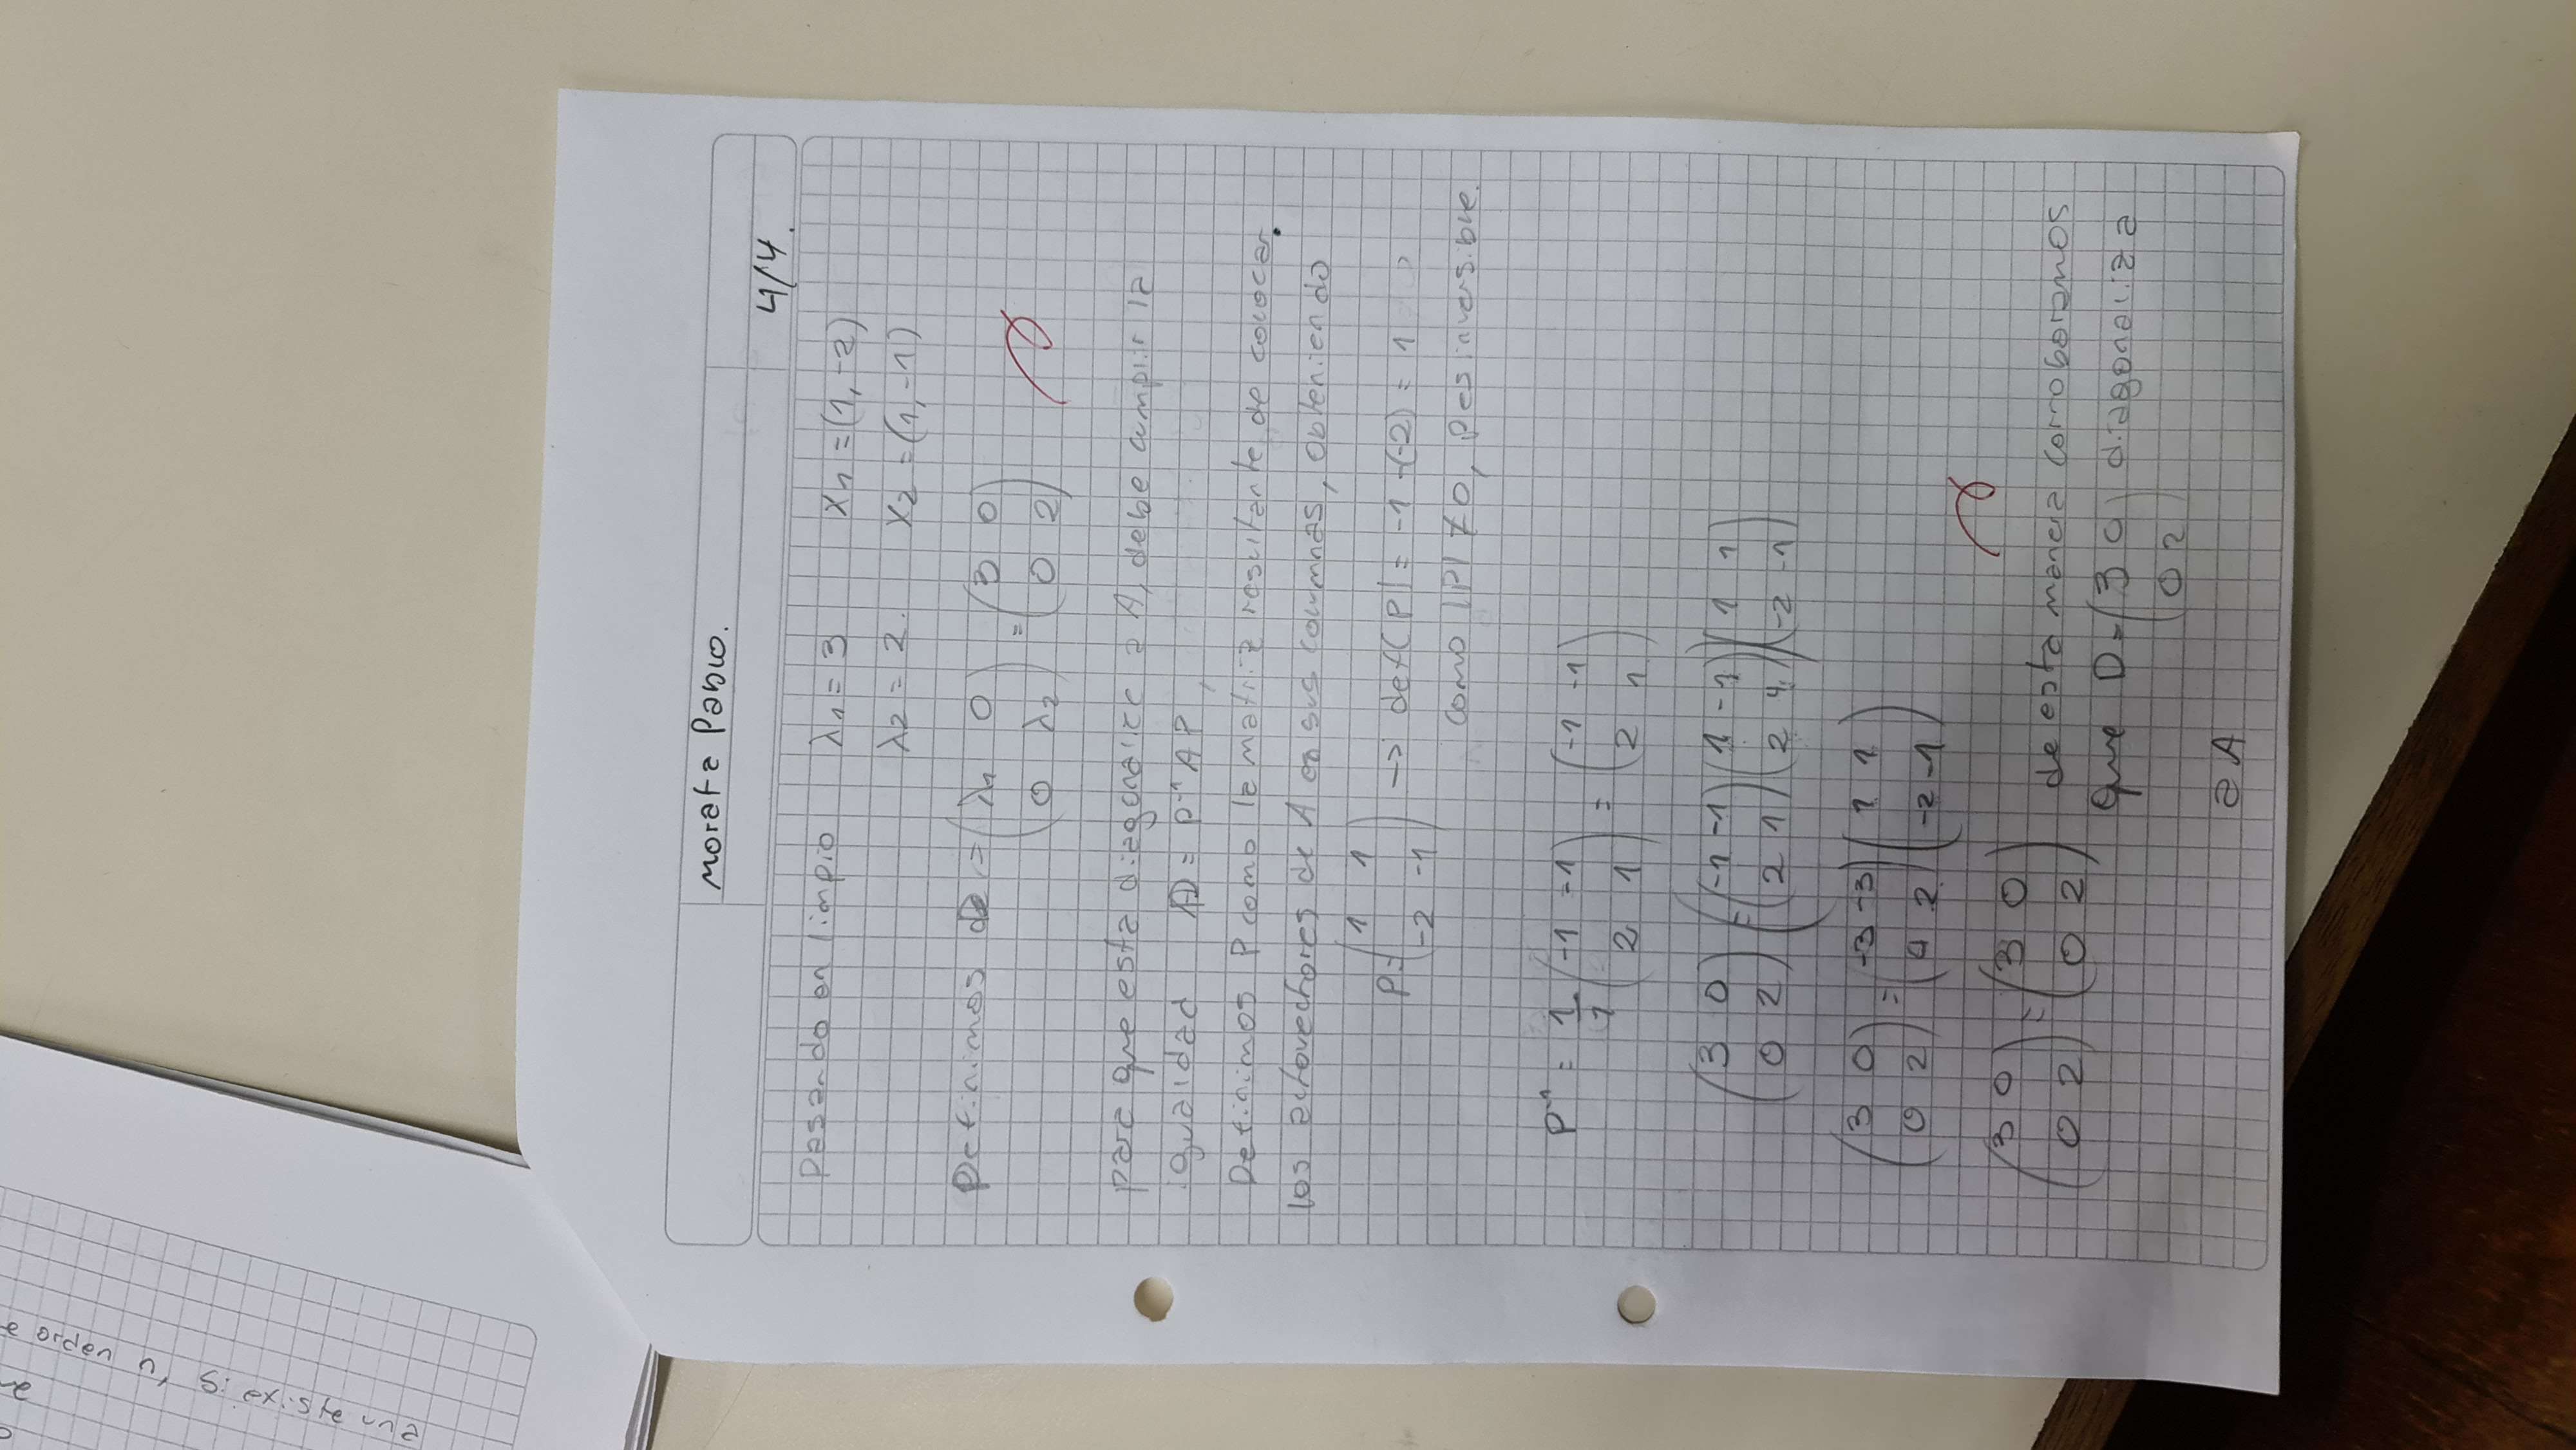 e orden n, Si existe una
Morata Pablo.
4/4.
pasando en limpio λ1 = 3 X1 = (1, -2)
λ2 = 2. X2 = (1, -1)
Definimos = (λ1 0 = (3 0
0 λ2) 0 2)
para que esta diagonalice a A, debe cumplir la
igualdad D = P⁻¹ A P,
Definimos P como la matriz resultante de colocar
los autovectores de A en sus columnas, obteniendo
P = (1 1
-2 -1) → det(P) = -1 -(-2) = 1
como |P| ≠ 0, P es inversible.
P⁻¹ = 1/1 (-1 -1 = (-1 -1
2 1) 2 1)
(3 0 = ((-1 -1 (1 -1 (1 1
0 2) 2 1) 2 4)) -2 -1)
(3 0 = (-3 -3 (1 1
0 2) 4 2) -2 -1)
(3 0 = (3 0
0 2) 0 2) de esta manera corroboramos
que D = (3 0 diagonaliza
0 2)
a A